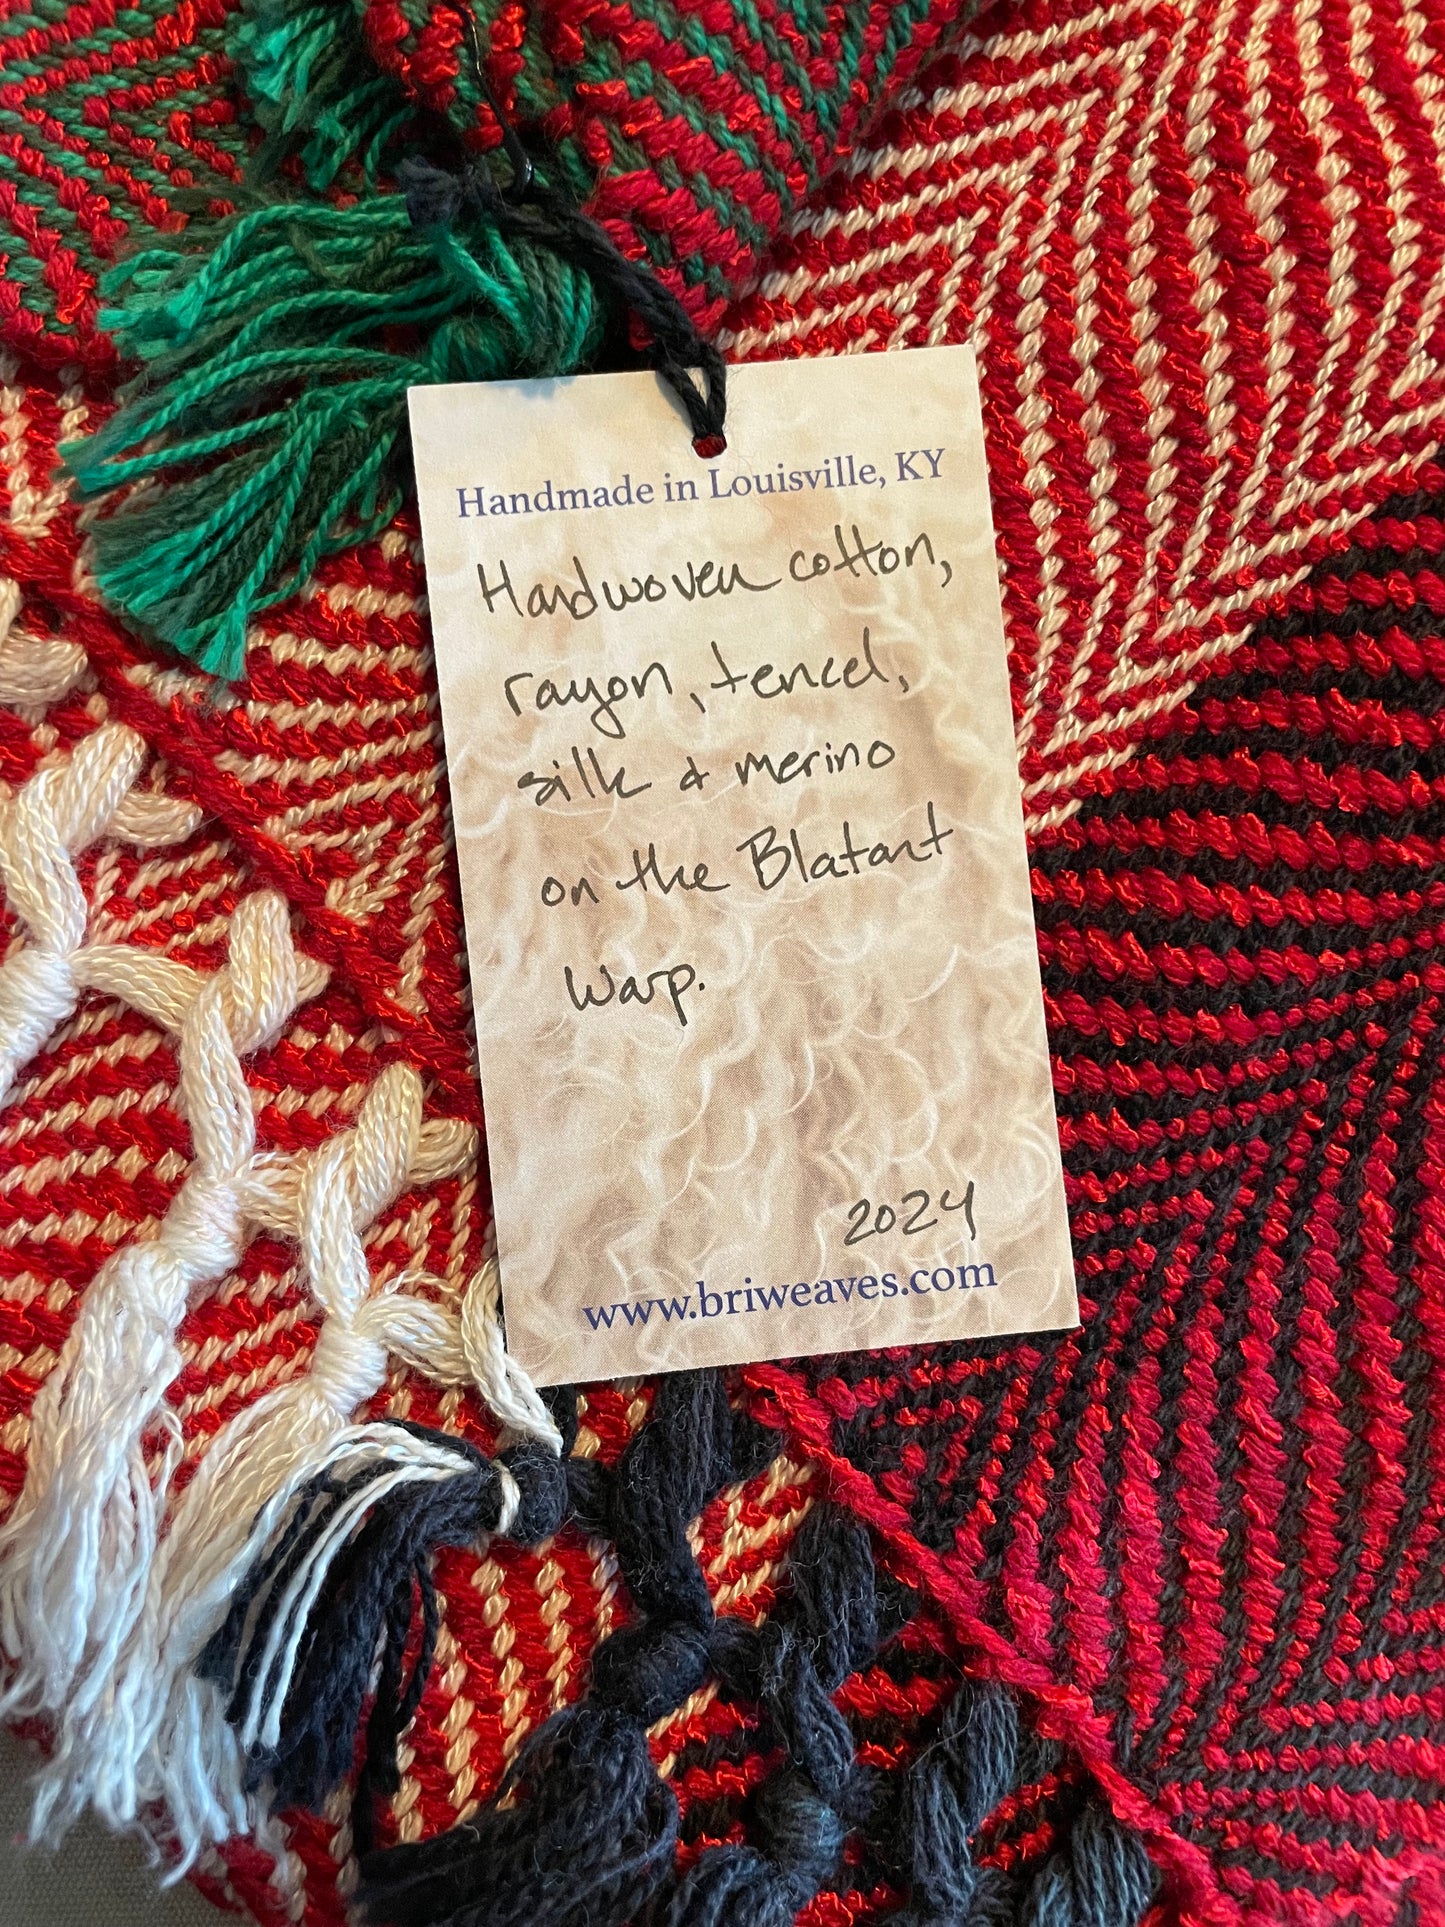 Handmade in Louisville, KY
Handwoven cotton,
rayon, tencel,
silk & merino
on the Blatant
Warp.
2024
www.briweaves.com